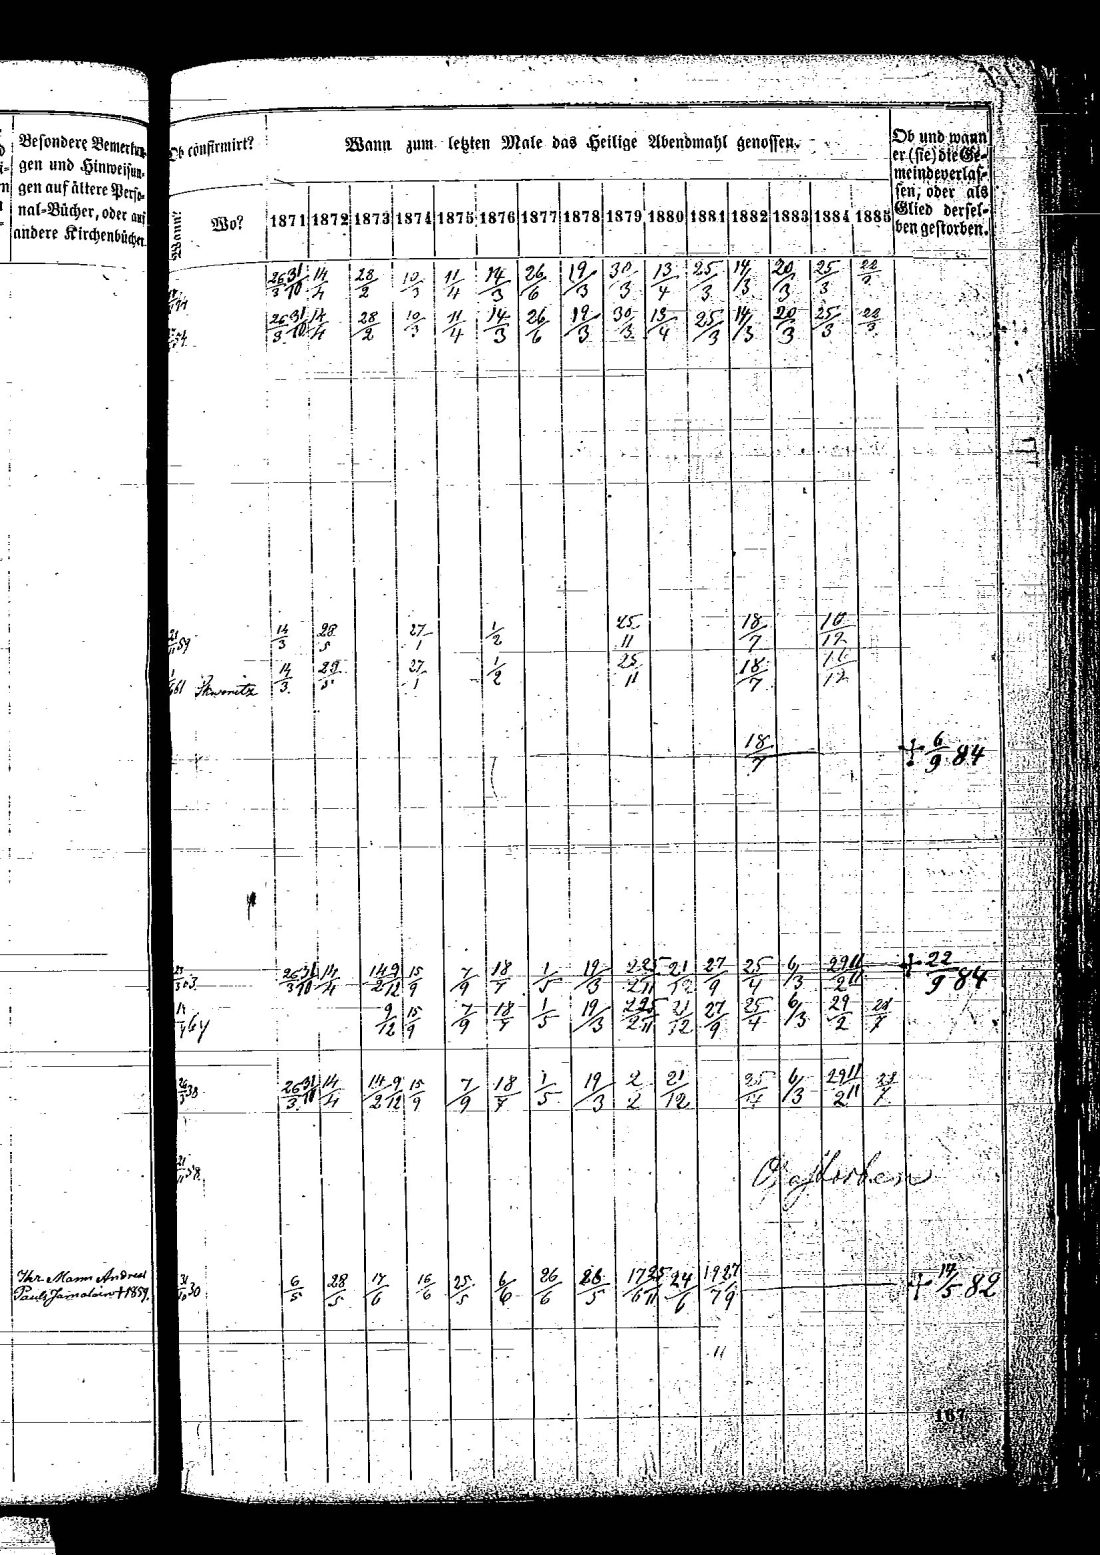 Besondere Bemerkun-
gen und Hinweisun-
gen auf ältere Perso-
nal-Bücher, oder auf
andere Kirchenbücher.
Ob confirmirt?
Wann?
Wo?
Wann zum letzten Male das Heilige Abendmahl genossen.
1871 1872 1873 1874 1875 1876 1877 1878 1879 1880 1881 1882 1883 1884 1885
Ob und wann
er (sie) die Ge-
meinde verlas-
sen, oder als
Glied dersel-
ben gestorben.
26/3 31/10 14/4 28/2 10/3 11/4 14/3 26/6 19/3 30/3 13/4 25/3 14/3 20/3 25/3 22/3
26/3 31/10 14/4 28/2 10/3 11/4 14/3 26/6 19/3 30/3 13/4 25/3 14/3 20/3 25/3 22/3
59 14/3 28/5 27/1 1/2 25/11 18/7 10/12
61 14/3 29/5 27/1 1/2 25/11 18/7
18/7 † 6/9 84
26/3 31/10 14/4 14/2 9/12 15/9 7/9 18/4 1/5 19/3 2/2 25/11 21/12 27/9 25/4 6/3 29/2 11/11 † 22/9 84
64 9/12 15/9 7/9 18/4 1/5 19/3 2/2 25/11 21/12 27/9 25/4 6/3 29/2 28/7
38 26/3 31/10 14/4 14/2 9/12 15/9 7/9 18/4 1/5 19/3 2/2 21/12 25/4 6/3 29/2 11/11 28/7
21/11 58 Gestorben
Ihr Mann Andreas
Pauls † 1859.
30 6/5 28/5 17/6 16/6 25/5 6/6 26/6 26/5 17/6 25/11 24/6 19/7 27/9 † 14/5 82
167